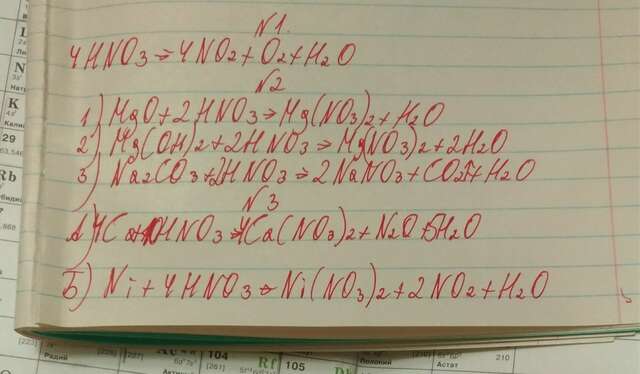 N1.
4HNO3 → 4NO2 + O2 + H2O
N2
1) MgO + 2HNO3 → Mg(NO3)2 + H2O
2) Mg(OH)2 + 2HNO3 → Mg(NO3)2 + 2H2O
3) Na2CO3 + 2HNO3 → 2NaNO3 + CO2↑ + H2O
N3
А) 4Ca + 10HNO3 → 4Ca(NO3)2 + N2O + 5H2O
Б) Ni + 4HNO3 → Ni(NO3)2 + 2NO2 + H2O
K
29
63,546
Rb
[223]
Радий
[226]
[227]
104
Rf
105
Астат
210